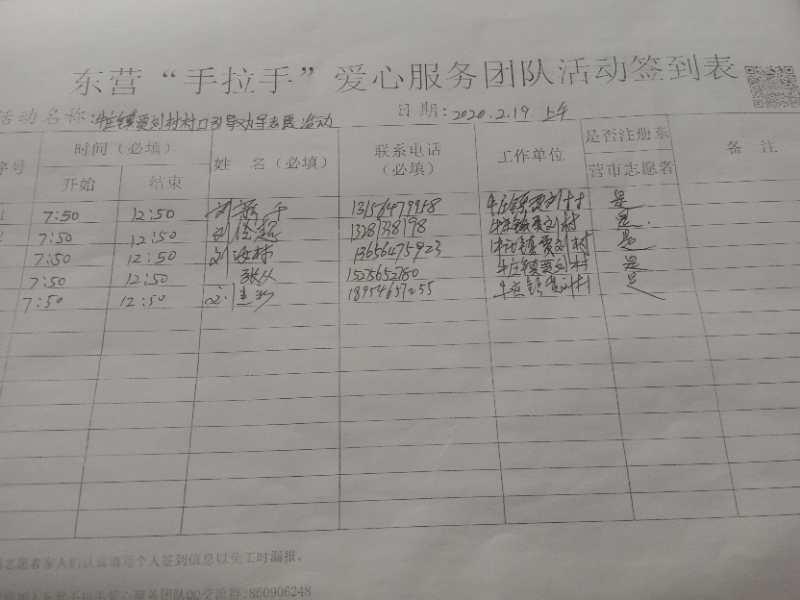 东营“手拉手”爱心服务团队活动签到表
活动名称:牛庄镇贾刘村村口引导劝导志愿活动 日期:2020.2.19 上午
序号 时间(必填) 姓 名(必填) 联系电话(必填) 工作单位 是否注册东营市志愿者 备 注
开始 结束
1 7:50 12:50 刘 牛庄镇贾刘村 是
2 7:50 12:50 刘 牛庄镇贾刘村 是
7:50 12:50 刘 13656475923 牛庄镇贾刘村 是
7:50 12:50 15275652780 牛庄镇贾刘村 是
7:50 12:50 18954657255 牛庄镇贾刘村 是
志愿者家人们认真填写个人签到信息以免工时漏报。
东营手拉手爱心服务团队QQ交流群:860906248